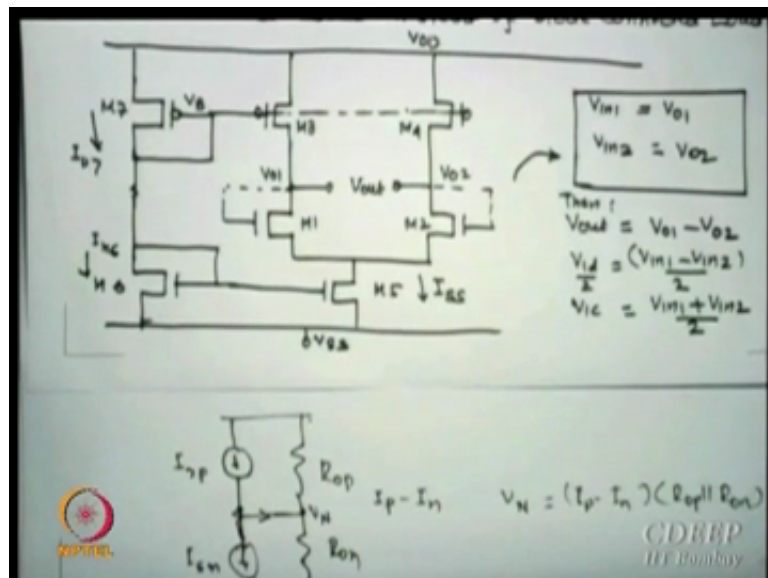 VDD
M7
VB
M3
M4
ID7
VO1
Vout
VO2
M1
M2
M6
M5
ISS
VSS
Vin1 = VO1
Vin2 = VO2
Then:
Vout = VO1 - VO2
Vid/2 = (Vin1 - Vin2)/2
Vic = Vin1 + Vin2/2
Rop
VN
Ip - In
VN = (Ip - In)(Rop || Ron)
Ron
NPTEL
CDEEP
IIT Bombay